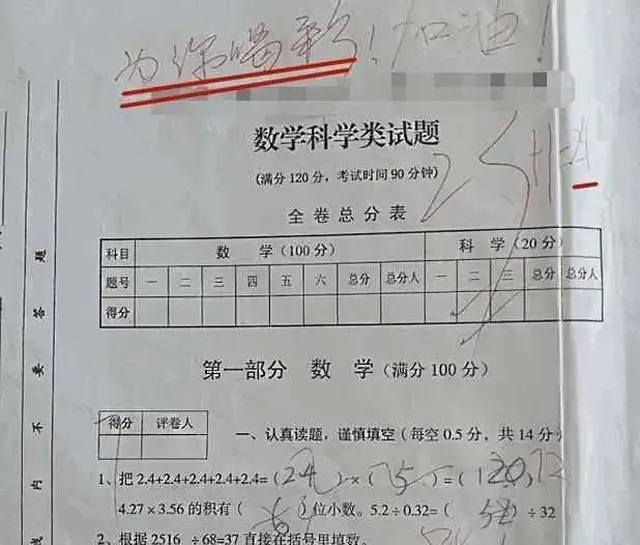 为你喝彩！加油！
数学科学类试题
(满分 120 分，考试时间 90 分钟)
全 卷 总 分 表
科目 数 学 (100 分) 科 学 (20 分)
题号 一 二 三 四 五 六 总分 总分人 一 二 三 总分 总分人
得分
第一部分 数 学 (满分 100 分)
得分 评卷人
一、认真读题，谨慎填空 (每空 0.5 分，共 14 分)
1、把 2.4+2.4+2.4+2.4+2.4=(24)×(5)=(120)
4.27×3.56 的积有( )位小数。5.2÷0.32=( )÷32
2、根据 2516 ÷68=37 直接在括号里填数。
题
答
要
不
内
线